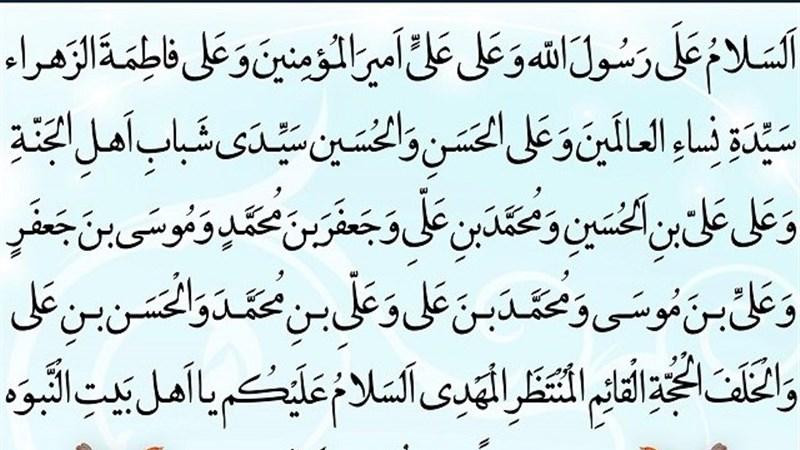 اَلسَلامُ عَلَی رَسُولَ الله وَعَلی عَلیٍّ اَمیرَ المُؤمِنینَ وَعَلی فاطِمَةَ الزَهراء
سَیِّدَةِ نِساءِ العالَمَینَ وَعَلی الحَسَنِ وَالحُسَین سَیِّدَی شَبابِ اَهلِ الجَنَّةِ
وَعَلی عَلیّ بنِ اَلحُسَینِ وَمُحَمَّدَ بنِ عَلّیِ وَجَعفَرَ بنَ مُحَمَّدٍ وَمُوسَی بنَ جَعفَرٍ
وَعَلیِّ بنَ مُوسَی وَمُحَمَّدَ بنَ عَلی وَعَلّیِ بنِ مُحَمَّدَ وَالْحَسَن بنِ عَلی
وَالْخَلَفَ الْحُجَّةِ الْقائِمِ الْمُنْتَظَرِ الْمَهْدِی اَلسَلامُ عَلَیْکُم یا اَهل بَیتِ الْنَّبوَه